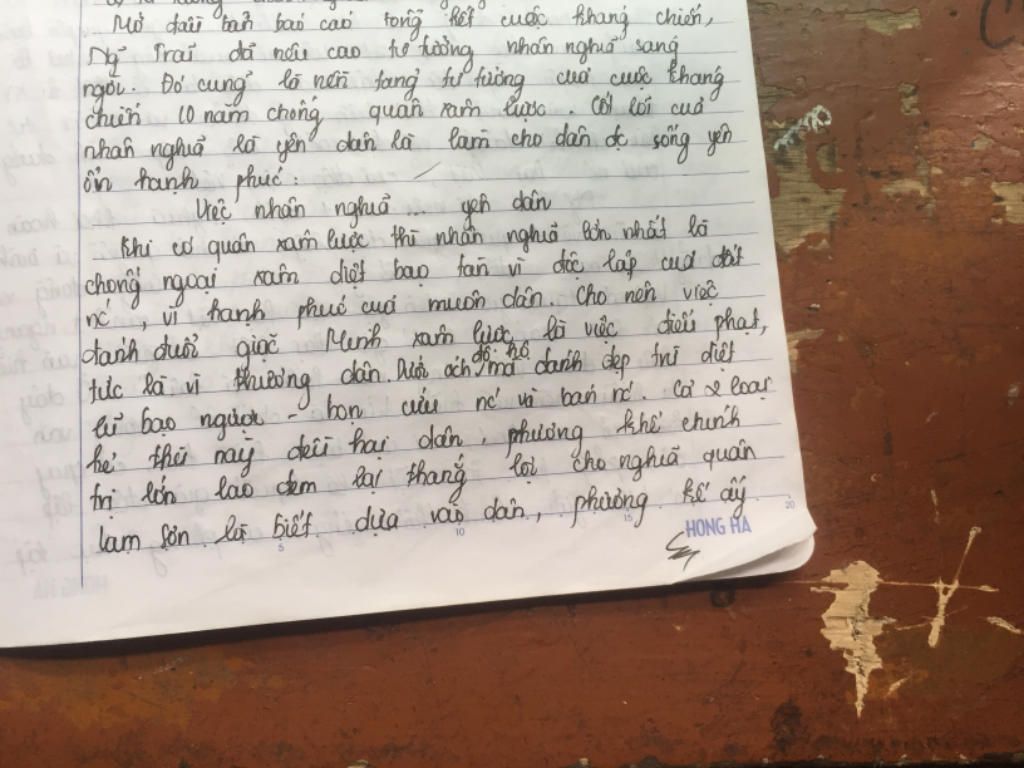 Mở đầu bản báo cáo tổng kết cuộc kháng chiến,
Ng~ Trãi đã nêu cao tư tưởng nhân nghĩa sáng
ngời. Đó cũng là nền tảng tư tưởng của cuộc kháng
chiến 10 năm chống quân xâm lược. Cốt lõi của
nhân nghĩa là yên dân là làm cho dân đc sống yên
ổn hạnh phúc.
Việc nhân nghĩa ... yên dân
Khi có quân xâm lược thì nhân nghĩa lớn nhất là
chống ngoại xâm diệt bạo tàn vì độc lập của đất
nc', vì hạnh phúc của muôn dân. Cho nên việc
đánh đuổi giặc Minh xâm lược là việc điếu phạt,
tức là vì thương dân. Dưới ách đô hộ mà đánh dẹp trừ diệt
lũ bạo ngược - bọn cướp nc' và bán nc'. Cả 2 loại
kẻ thù này đều hại dân, phương kế chính
trị lớn lao đem lại thắng lợi cho nghĩa quân
lam sơn là biết dựa vào dân, phương kế ấy
5 10 15 20
HONG HA